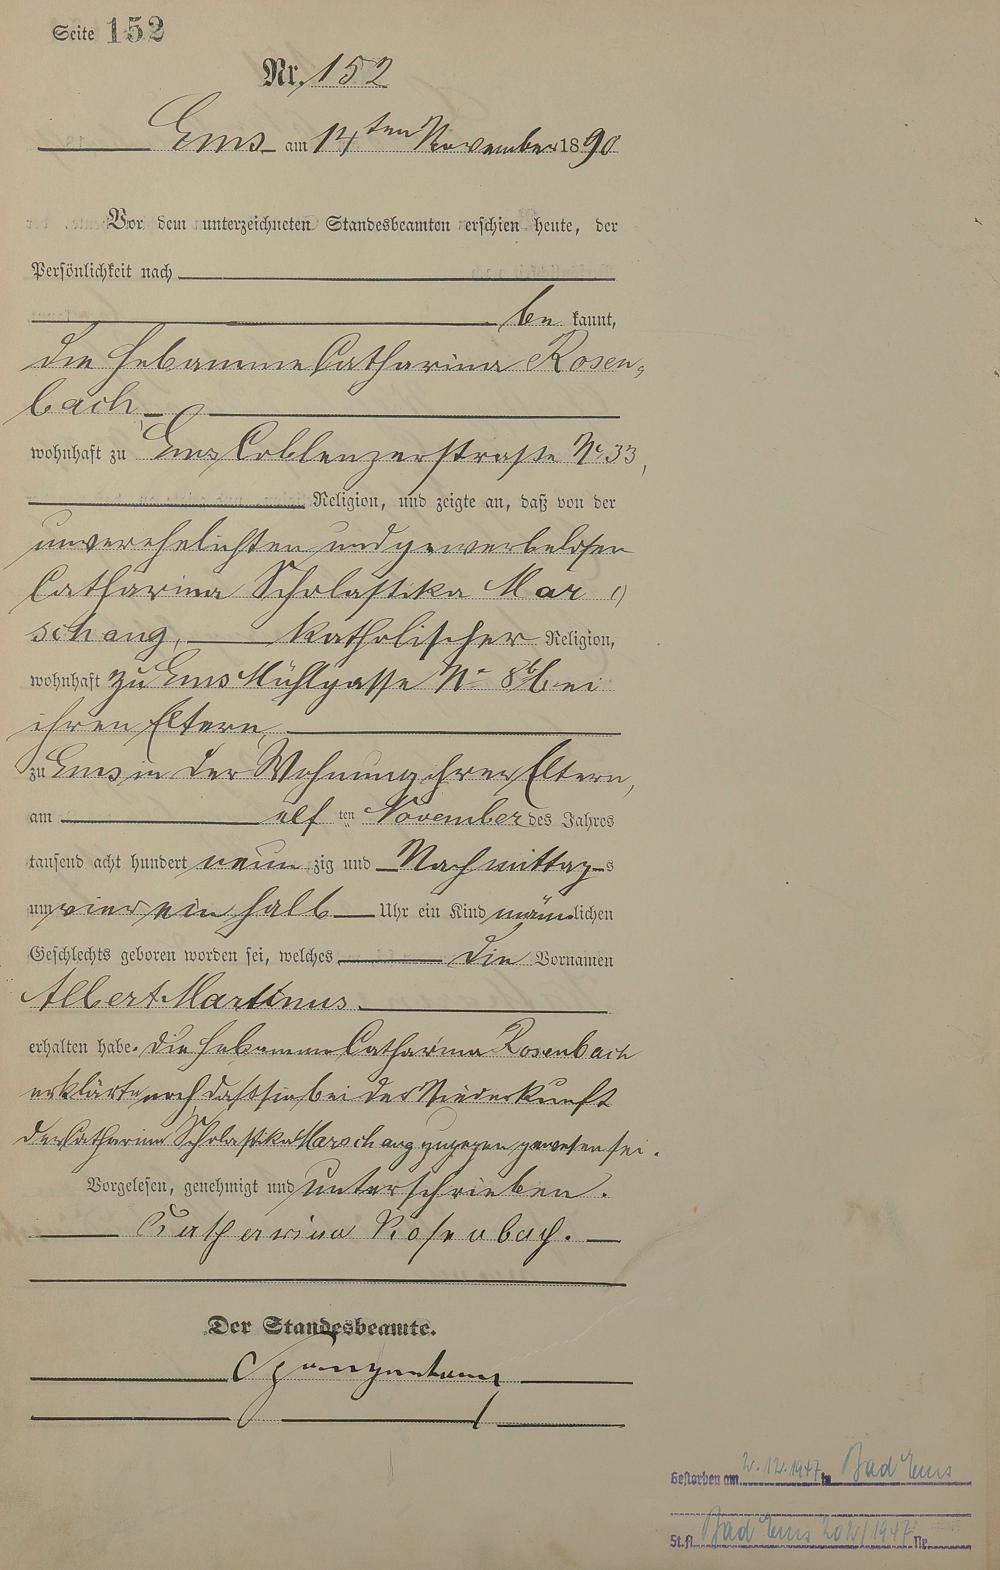 Seite 152
Nr. 152
Ems am 14ten November 1890
Vor dem unterzeichneten Standesbeamten erschien heute, der
Persönlichkeit nach
be kannt,
die Hebamme Catharina Rosen-
bach,
wohnhaft zu Ems Coblenzerstraße No 33,
Religion, und zeigte an, daß von der
unverehelichten und gewerbelosen
Catharina Scholastika Mar
schang, katholischer Religion,
wohnhaft zu Ems Mühlgasse No 8b bei
ihren Eltern,
zu Ems in der Wohnung ihrer Eltern,
am elf ten November des Jahres
tausend acht hundert neun zig und Nachmittag s
um vier ein halb Uhr ein Kind männlichen
Geschlechts geboren worden sei, welches die Vornamen
Albert Martinus
erhalten habe. Die Hebamme Catharina Rosenbach
erklärte noch, daß sie bei der Niederkunft
der Catharina Scholastika Marschang zugegen gewesen sei.
Vorgelesen, genehmigt und unterschrieben.
Katharina Rosenbach.
Der Standesbeamte.
Gestorben am 2.12.1947 in Bad Ems
St.A. Bad Ems 202/1947 Nr.